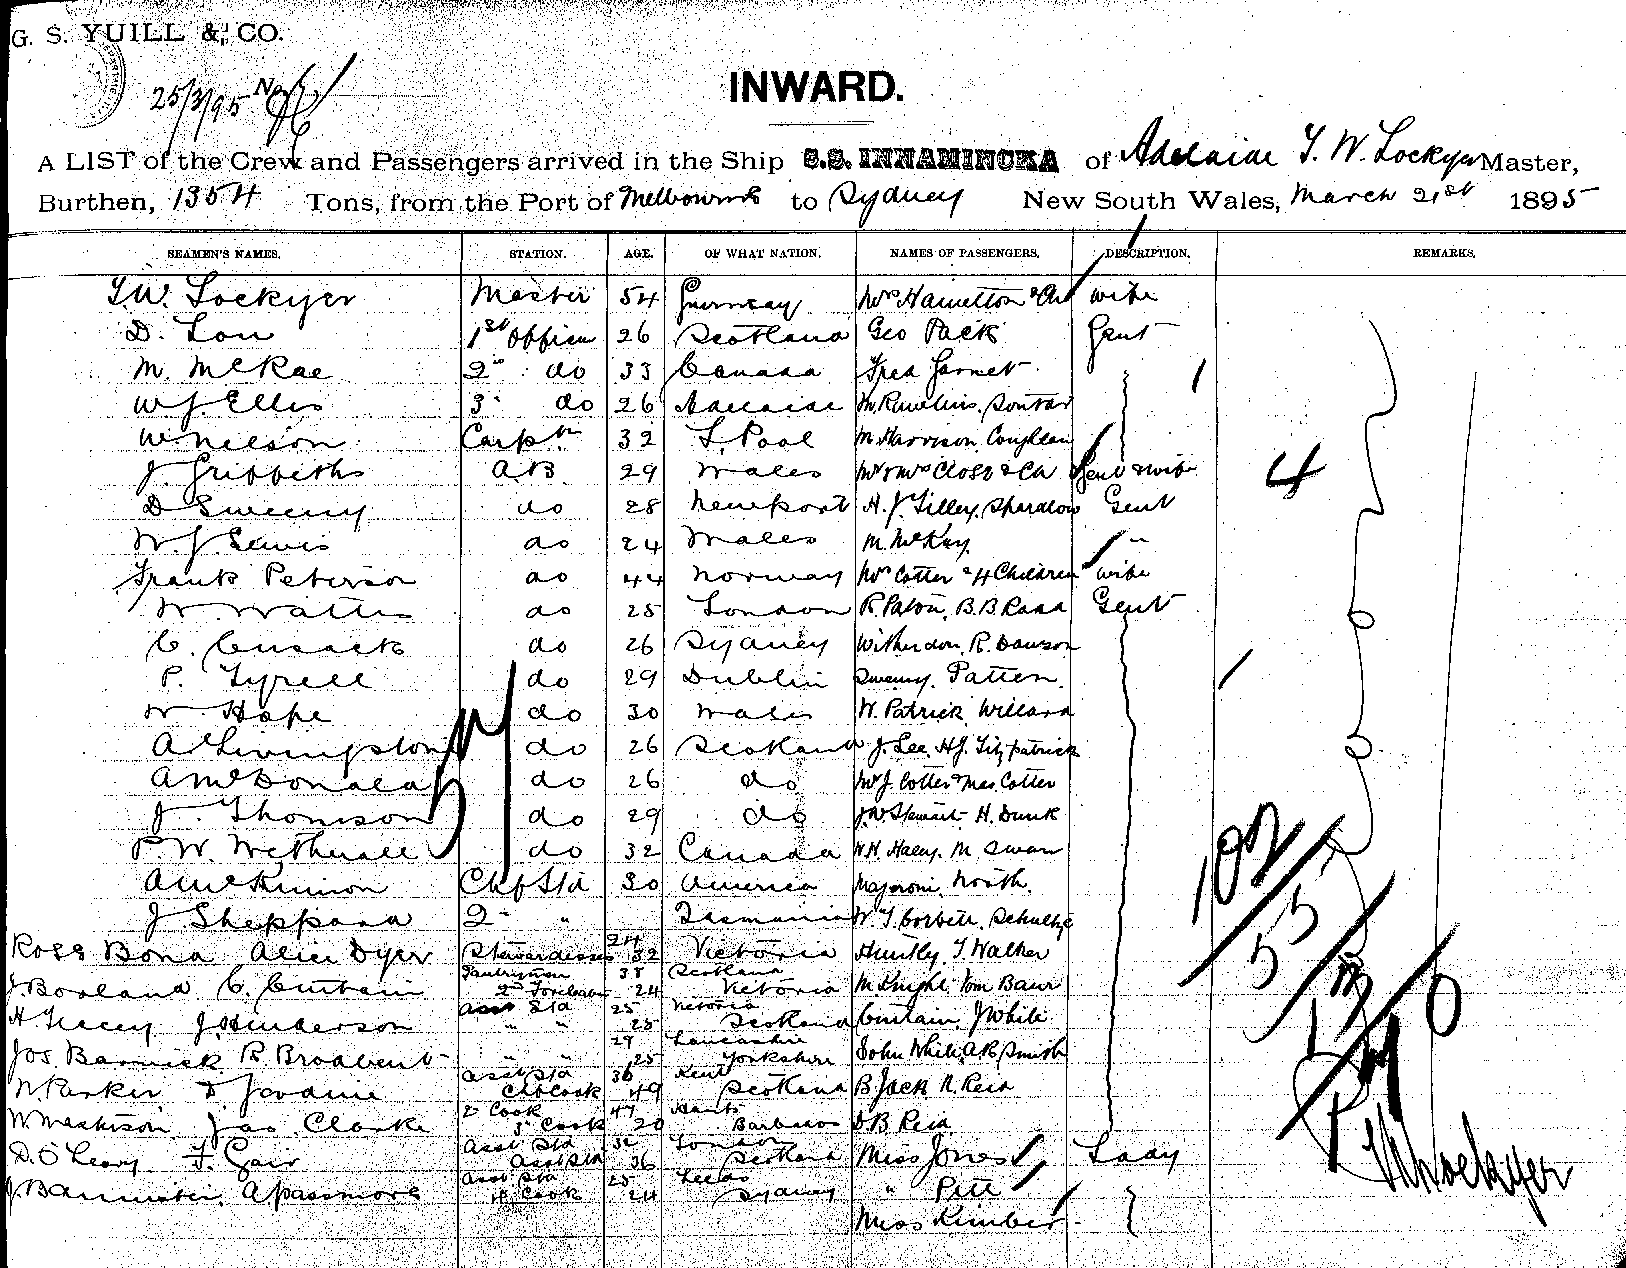 G. S. YUILL & CO.
25/3/95 No
INWARD.
A LIST of the Crew and Passengers arrived in the Ship S.S. INNAMINCKA of Adelaide T. W. Lockyer Master,
Burthen, 1354 Tons, from the Port of Melbourne to Sydney New South Wales, March 21st 1895
SEAMEN'S NAMES. STATION. AGE. OF WHAT NATION. NAMES OF PASSENGERS. DESCRIPTION. REMARKS.
T.W. Lockyer Master 54 Guernsay Mrs Hamelton & Ch wife
D. Lou 1st Officer 26 Scotland Geo Pack Gent
M. McRae 2" do 33 Canada Fred Garnet
W J. Ellis 3" do 26 Adelaide M. Rawlins. Souter
W Nelson Carptr 32 L. Pool M. Harrison Coughlan
J. Gribbeths AB 29 Wales Mr & Mrs Close & Ch Gent & wife 4
D Sweeny do 28 Newport H. J. Tilley. Gent
W. J. Lewis do 24 Wales M. McKay "
Frank Peterson do 44 Norway Mrs Cotter & 4 Children wife
W. Watts do 25 London R. Paton, B. B Rand Gent
C. Cusack do 26 Sydney R. Dawson
P. Tyrell do 29 Dublin Sweeny. Patten
W Hope do 30 Wales W. Patrick Willard
A Livingston do 26 Scotland J. Lee. H J. Fitzpatrick
A McDonald do 26 do Mr J. Cotter & Mas. Cotter
J. Thomson do 29 do J W Stewart H. Dunk
P. W. Wetherall do 32 Canada Haley. M. Swan
A McKinnon Chf Std 30 America Majoroni North
J Sheppard 2" " Tasmania W. T. Corbett. Schultze
Ross Bona Alice Dyer Stewardesses 24 32 Victoria Huntly. T. Walker
J. Borland C. Curtain Pantryman 2nd Forecabin 38 24 Scotland Victoria McKnight Tom Baur
H. Tracey J. Henderson asst Std " " 25 28 Victoria Scotland Curtain. J White
Jos. Barwick R. Broadbent " " 29 25 Lancashire Yorkshire John White A R Smith
W. Parker D Jardine asst Std Ch Cook 36 49 Kent Scotland B Jack R. Reid
Jas. Clarke 2 Cook 3" Cook 47 20 Hants Barbados D B Reid
D. O'Leary F. Gair Asst Std Asst Std 36 London Scotland Miss Jones Lady
J. Bannister A Passmore Asst Std Cook 25 24 Leeds Sydney " Pitt
Miss Kimber
102
55
T W Lockyer